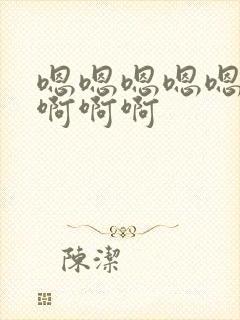 嗯嗯嗯嗯嗯
啊啊啊
陳潔